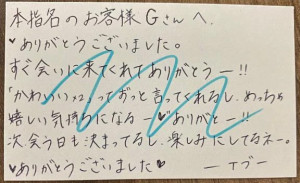 本指名のお客様Gさんへ
♥ありがとうございました。
すぐ会いに来てくれてありがとうー!!
「かわいい×2」ってずっと言ってくれるし、めっちゃ
嬉しい気持ちになるー♥ありがとー!!
次、会う日も決まってるし、楽しみにしてるネー。
♥ありがとうございました♥